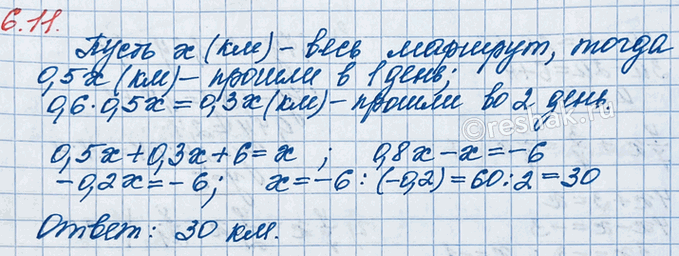 6.11.
Пусть x (км) – весь маршрут, тогда
0,5x (км) – прошли в 1 день;
0,6·0,5x = 0,3x (км) – прошли во 2 день.
©reshak.ru
0,5x + 0,3x + 6 = x ; 0,8x – x = –6
–0,2x = –6; x = –6 : (–0,2) = 60 : 2 = 30
Ответ: 30 км.